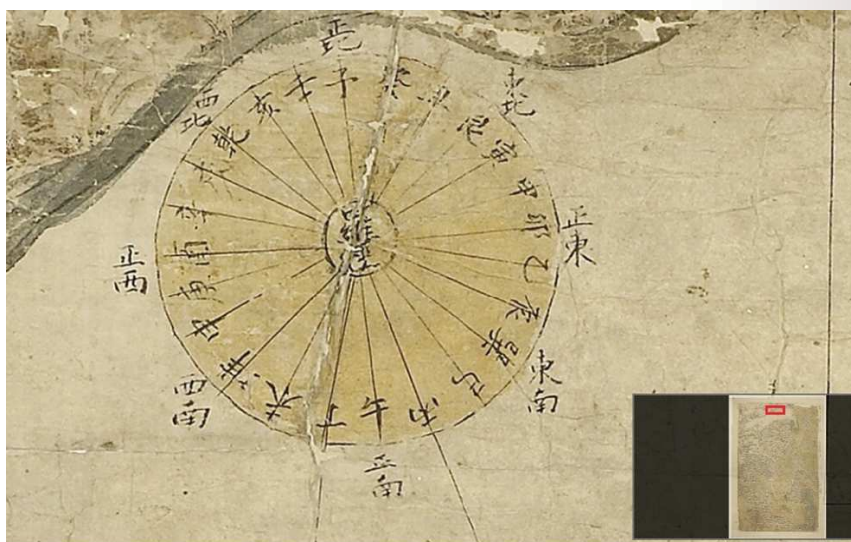 正北
東北
正東
東南
正南
西南
正西
西北
子
癸
丑
艮
寅
甲
卯
乙
辰
巽
巳
丙
午
丁
未
坤
申
庚
酉
辛
戌
乾
亥
壬
羅經